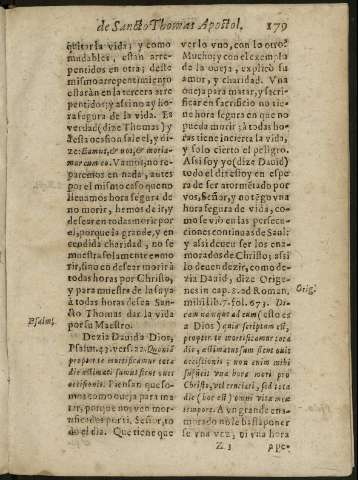 de Sancto Thomas Apostol. 179
quitar la vida; y como
mudables, están arre-
pentidos en otra; deste
mismo arrepentimiento
estarán en la tercera arre
pentidos; y assi no ay ho
ra segura de la vida. Es
verdad (dize Thomas) y
desta ocasion sale el, y di-
ze: Eamus, & nos, & moria-
mur cum eo. Vamos, no re-
paremos en nada, antes
por el mismo caso que no
lleuamos hora segura de
no morir, hemos de ir, y
dessear en todas morir por
el, porque la grande, y en-
cendida charidad, no se
muestra solamente en mo
rir, sino en dessear morir à
todas horas por Christo,
y para muestra de la suya
à todas horas dessea San-
cto Thomas dar la vida
por su Maestro.
Dezia Dauid a Dios,
Psalm. 43. vers. 22. Quoniã
propter te mortificamur tota
die æstimati sumus sicut oues
occisionis. Piensan que so-
mos como oueja para ma
tar, porque nos ven mor-
tificados por ti, Señor, to
do el dia. Que tiene que
Psalm.
ver lo vno, con lo otro?
Mucho; y con el exemplo
de la oueja, explicò su
amor, y charidad. Vna
oueja para matar, y sacri-
ficar en sacrificio no tie-
ne hora segura en que no
pueda morir; à todas ho-
ras tiene incierta la vida,
y solo cierto el peligro.
Assi soy yo (dize Dauid)
todo el dia estoy en espe
ra de ser atormẽtado por
vos, Señor, y no tẽgo vna
hora segura de vida, co-
mo se viò en las persecu-
ciones continuas de Saul:
y assi deuen ser los ena-
morados de Christo; assi
lo deuen dezir, como de-
zia Dauid, dize Orige-
nes in cap. 8. ad Roman.
mihi lib. 7. fol. 673. Di-
cam nunquam ad eum (esto es
a Dios) quia scriptum est,
propter te mortificamur tota
die, æstimati sumus sicut oues
occisionis; non enim mihi
sufficit vna hora mori pro
Christo, vel cruciari, sed tota
die (hoc est) omni vitæ meæ
tempore. A vn grande ena-
morado no le basta poner
se vna vez; vi vna hora
Orig.
Z 3 ppe-